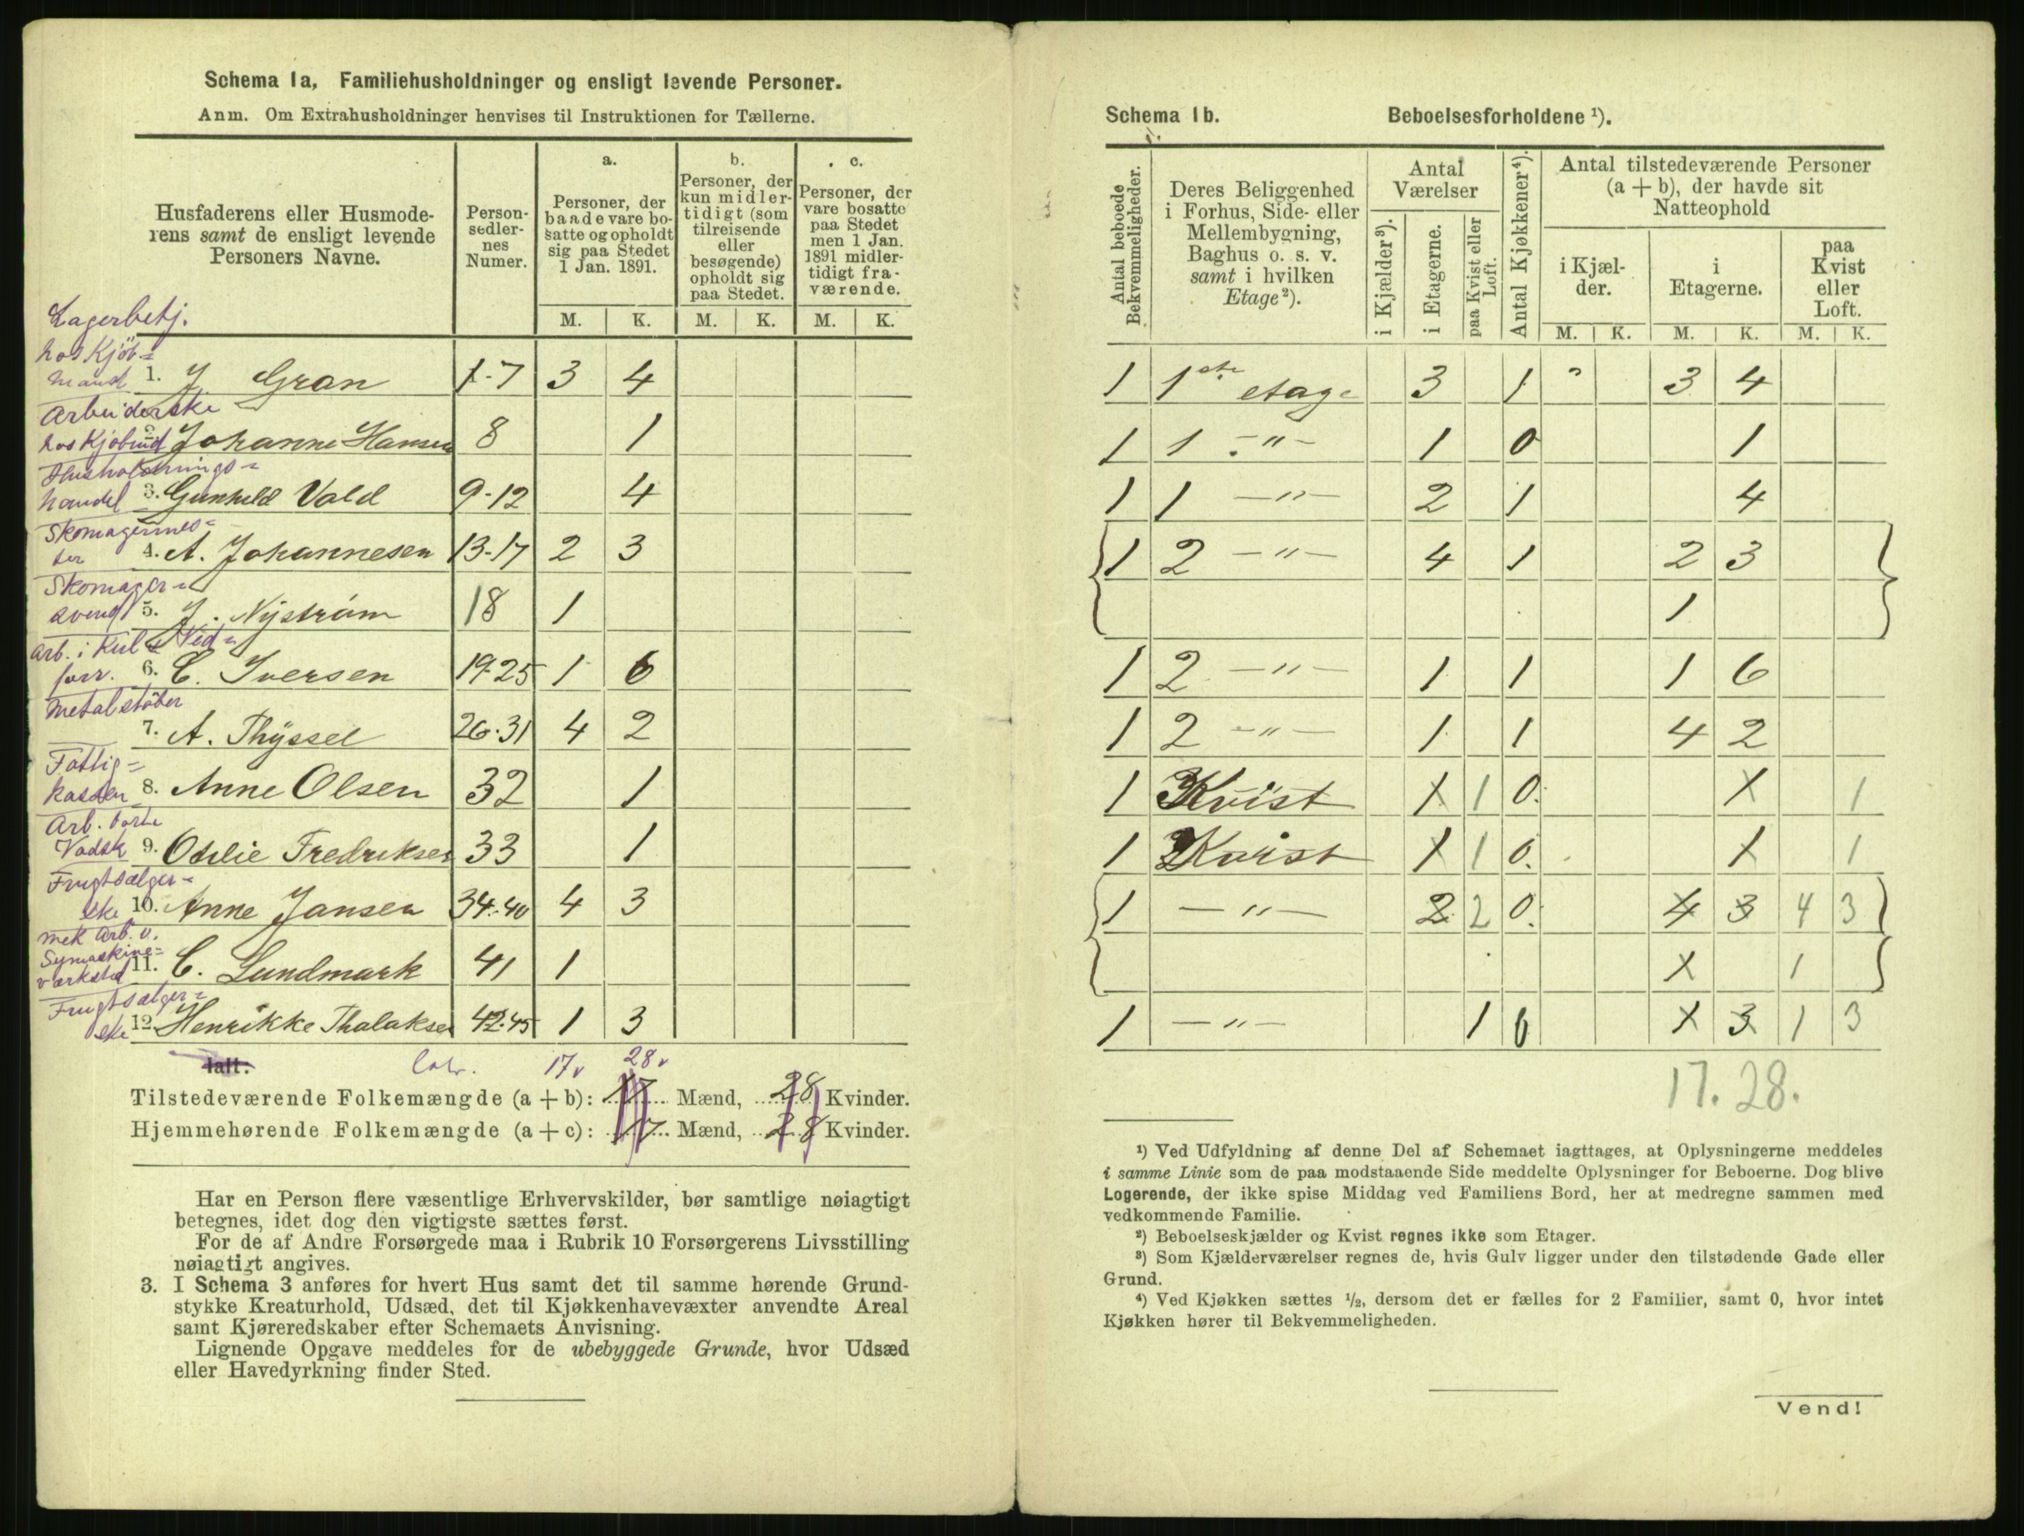 Schema 1a, Familiehusholdninger og ensligt levende Personer.
Anm. Om Extrahusholdninger henvises til Instruktionen for Tællerne.
Husfaderens eller Husmode-
rens samt de ensligt levende
Personers Navne.
Person-
sedler-
nes
Numer.
a.
Personer, der
baade vare bo-
satte og opholdt
sig paa Stedet
1 Jan. 1891.
b.
Personer, der
kun midler-
tidigt (som
tilreisende
eller
besøgende)
opholdt sig
paa Stedet.
c.
Personer, der
vare bosatte
paa Stedet
men 1 Jan.
1891 midler-
tidigt fra-
værende.
M. K. M. K. M. K.
Lagerbetj.
hos Kjøb=
mand 1. J Gran 1-7 3 4
Arbeiderske
hos Kjøbmd 2. Johanne Hansen 8 1
Husholdnings=
handel 3. Gunhild Vold 9-12 4
Skomagermes=
ter 4. A. Johannesen 13-17 2 3
Skomager=
svend 5. J. Nystrøm 18 1
Arb. i Kul & Ved=
forr. 6. C. Iversen 19-25 1 6
Metalstøber
7. A. Thyssel 26-31 4 2
Fattig=
kassen 8. Anne Olsen 32 1
Arb. borte
Vadsk 9. Otilie Fredriksen 33 1
Frugtsælger=
ske 10. Anne Jansen 34-40 4 3
mek Arb. v.
Symaskine=
værksted 11. C. Lundmark 41 1
Frugtsælger=
ske 12. Henrikke Thalaksen 42-45 1 3
Ialt: 17 v 28 v
Tilstedeværende Folkemængde (a + b): 17 Mænd, 28 Kvinder.
Hjemmehørende Folkemængde (a + c): 17 Mænd, 28 Kvinder.
Har en Person flere væsentlige Erhvervskilder, bør samtlige nøiagtigt
betegnes, idet dog den vigtigste sættes først.
For de af Andre Forsørgede maa i Rubrik 10 Forsørgerens Livsstilling
nøiagtigt angives.
3. I Schema 3 anføres for hvert Hus samt det til samme hørende Grund-
stykke Kreaturhold, Udsæd, det til Kjøkkenhavevæxter anvendte Areal
samt Kjøreredskaber efter Schemaets Anvisning.
Lignende Opgave meddeles for de ubebyggede Grunde, hvor Udsæd
eller Havedyrkning finder Sted.
Schema 1b. Beboelsesforholdene ¹).
Antal beboede
Bekvemmeligheder.
Deres Beliggenhed
i Forhus, Side- eller
Mellembygning,
Baghus o. s. v.
samt i hvilken
Etage²).
Antal
Værelser
i Kjælder³).
i Etagerne.
paa Kvist eller
Loft.
Antal Kjøkkener⁴).
Antal tilstedeværende Personer
(a + b), der havde sit
Natteophold
i Kjæl-
der.
i
Etagerne.
paa
Kvist
eller
Loft.
M. K. M. K. M. K.
1 1ste etage 3 1 " 3 4
1 1 -"- 1 0 1
1 1 -"- 2 1 4
1 2 -"- 4 1 2 3
1
1 2 -"- 1 1 1 6
1 2 -"- 1 1 4 2
1 Kvist 1 1 0. 1 1
1 Kvist 1 1 0. 1 1
1 -"- 2 2 0. 4 3 4 3
1 1
1 -"- 1 0 1 3 1 3
17. 28.
¹) Ved Udfyldning af denne Del af Schemaet iagttages, at Oplysningerne meddeles
i samme Linie som de paa modstaaende Side meddelte Oplysninger for Beboerne. Dog blive
Logerende, der ikke spise Middag ved Familiens Bord, her at medregne sammen med
vedkommende Familie.
²) Beboelseskjælder og Kvist regnes ikke som Etager.
³) Som Kjælderværelser regnes de, hvis Gulv ligger under den tilstødende Gade eller
Grund.
⁴) Ved Kjøkken sættes ½, dersom det er fælles for 2 Familier, samt 0, hvor intet
Kjøkken hører til Bekvemmeligheden.
Vend!